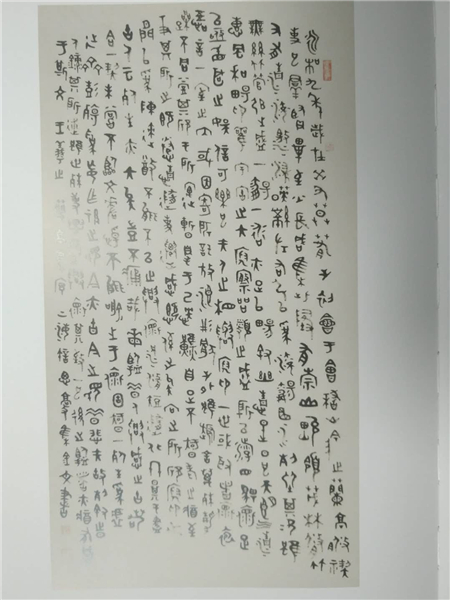 永和九年歲在癸丑暮春之初會于會稽山陰之蘭亭脩禊
事也群賢畢至少長咸集此地有崇山峻領茂林脩竹
又有清流激湍映帶左右引以為流觴曲水列坐其次雖
無絲竹管弦之盛一觴一詠亦足以暢敘幽情是日也天朗氣清
惠風和暢仰觀宇宙之大俯察品類之盛所以遊目騁懷足
以極視聽之娛信可樂也夫人之相與俯仰一世或取諸懷抱
悟言一室之內或因寄所託放浪形骸之外雖趣舍萬殊靜
躁不同當其欣于所遇暫得于己快然自足不知老之將至
及其所之既倦情隨事遷感慨係之矣向之所欣俯仰之
間以為陳迹猶不能不以之興懷況脩短隨化終期于盡
古人云死生亦大矣豈不痛哉每覽昔人興感之由若
合一契未嘗不臨文嗟悼不能喻之于懷固知一死生為虛
誕齊彭殤為妄作後之視今亦由今之視昔悲夫故列敘時
人錄其所述雖世殊事異所以興懷其致一也後之覽者亦將有感
于斯文 王羲之 集金文書